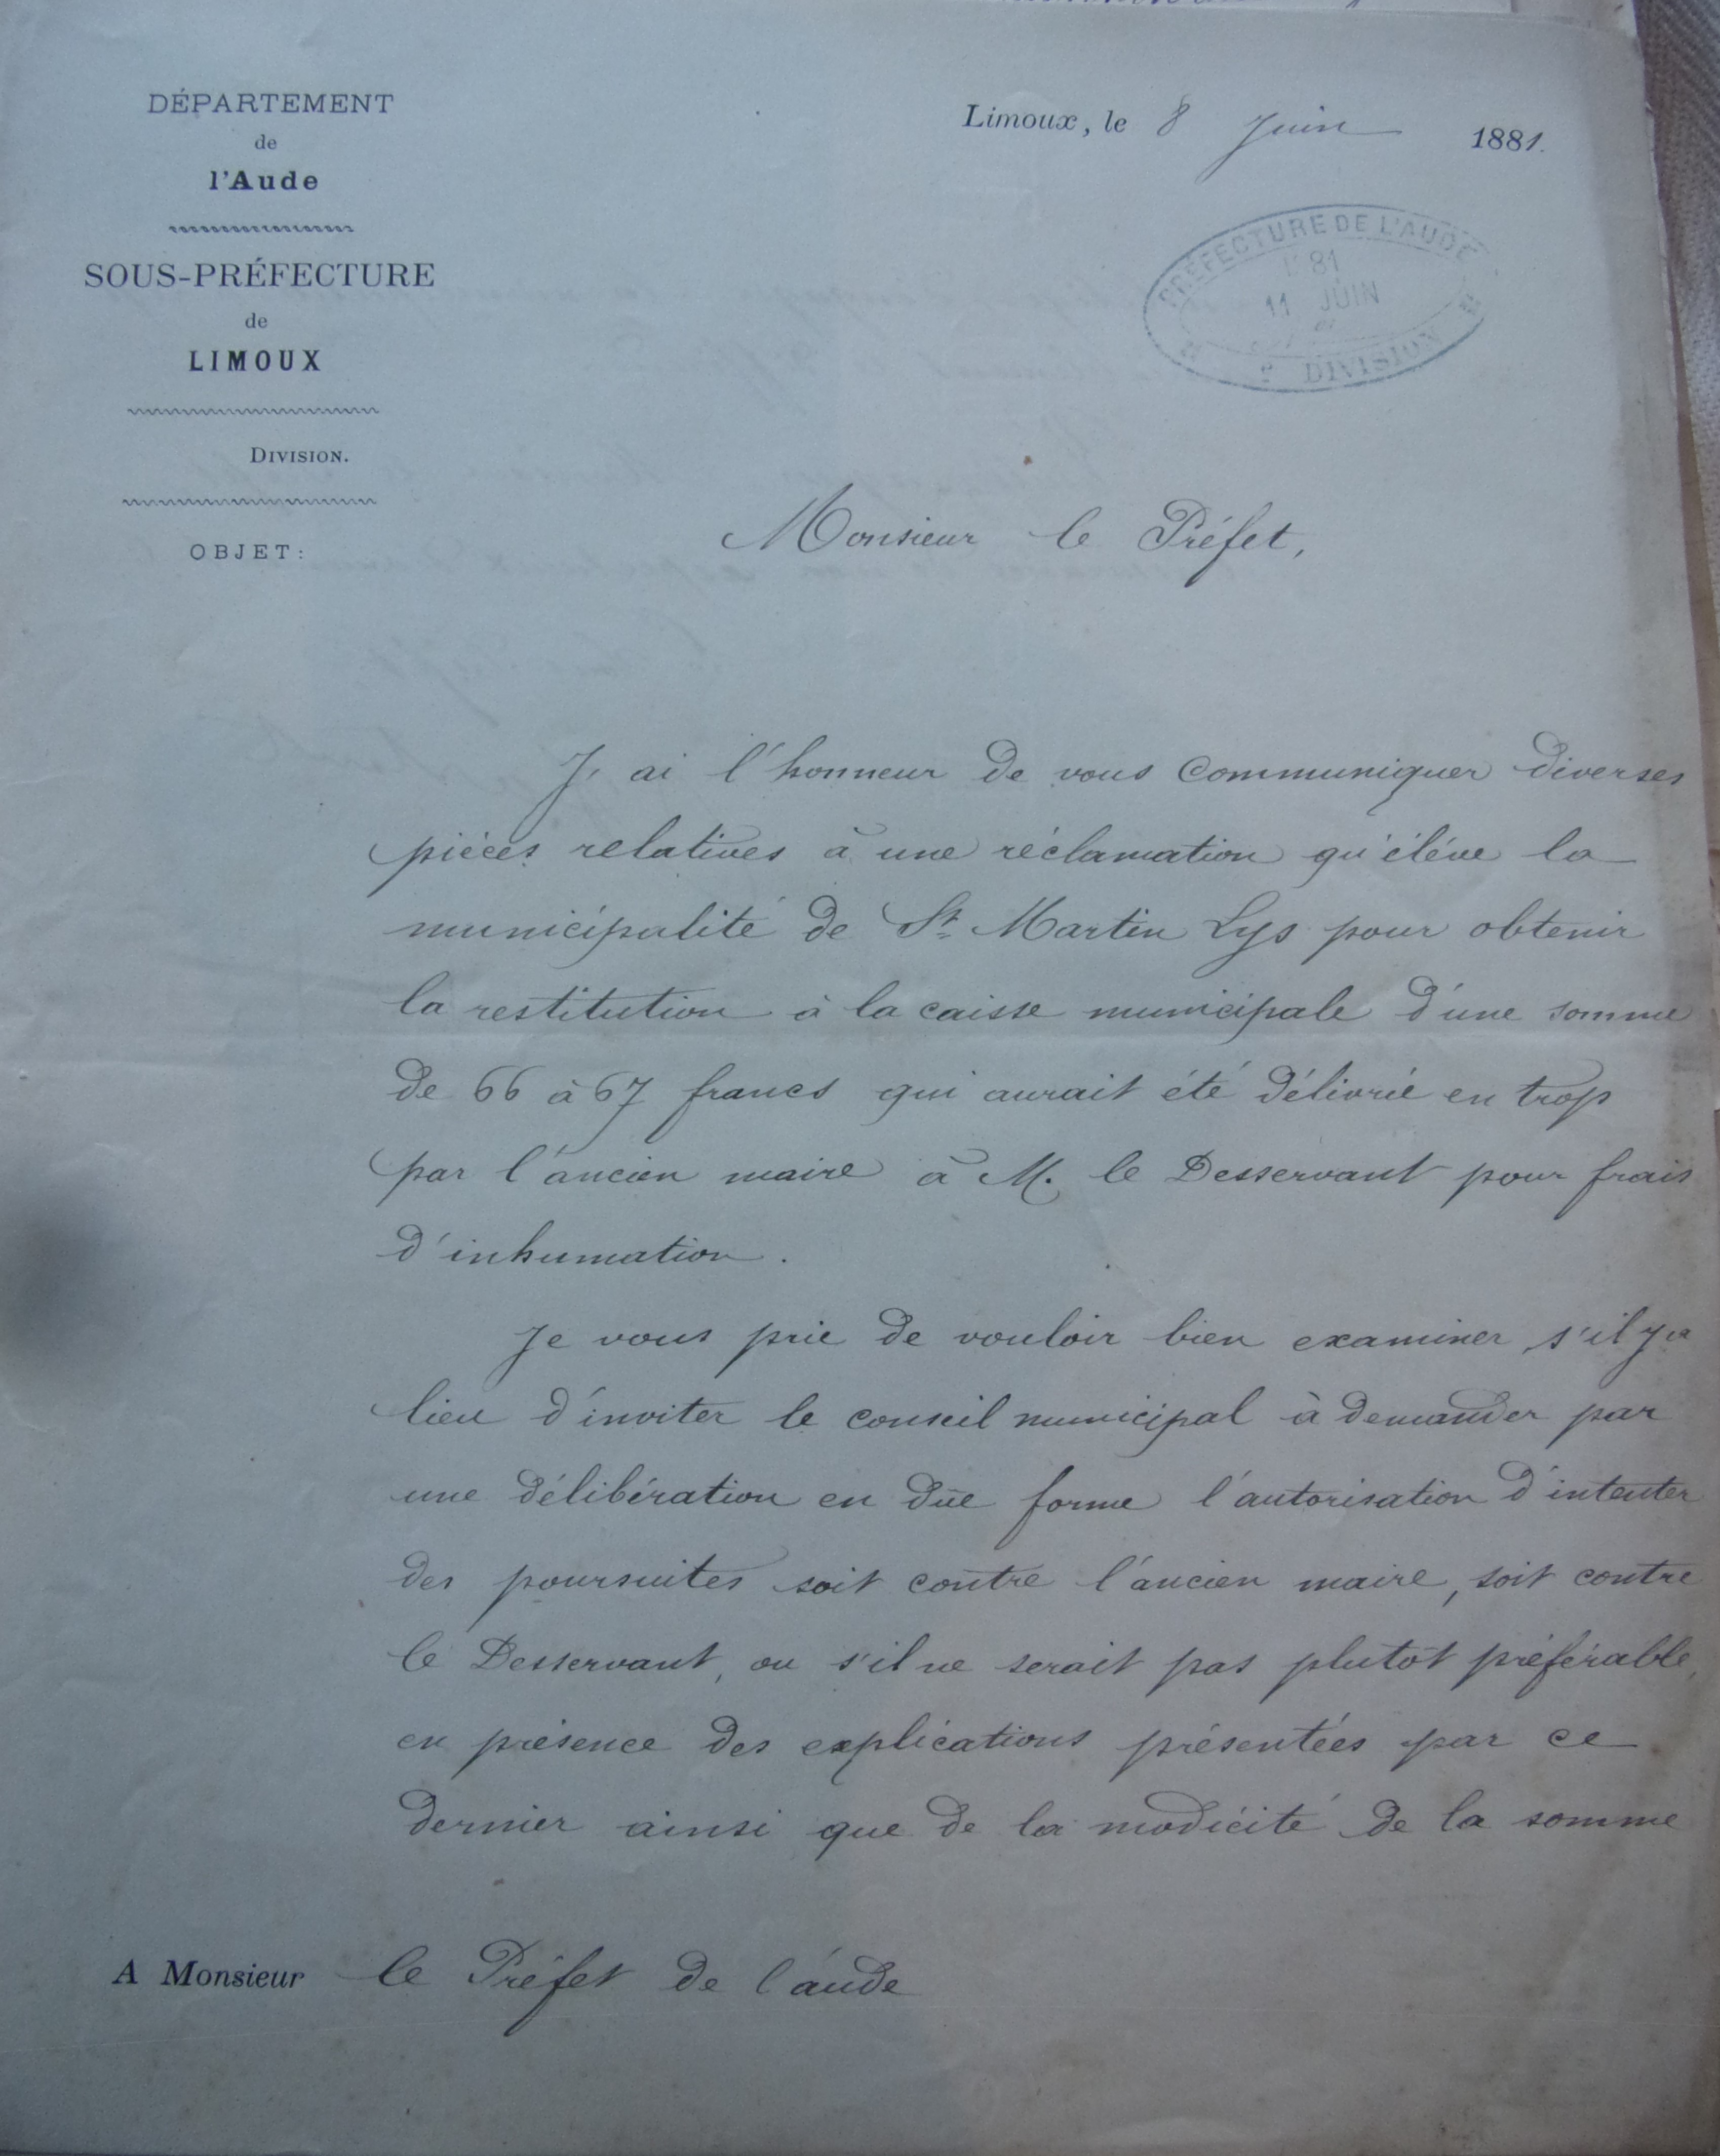 DÉPARTEMENT
de
l'Aude
SOUS-PRÉFECTURE
de
LIMOUX
DIVISION.
OBJET:
Limoux, le 8 Juin 1881.
PRÉFECTURE DE L'AUDE
81
11 JUIN
DIVISION
Monsieur le Préfet,
J'ai l'honneur de vous communiquer diverses
pièces relatives à une réclamation qu'élève la
municipalité de St Martin Lys pour obtenir
la restitution à la caisse municipale d'une somme
de 66 à 67 francs qui aurait été délivrée en trop
par l'ancien maire à M. le Desservant pour frais
d'inhumation.
Je vous prie de vouloir bien examiner s'il y a
lieu d'inviter le conseil municipal à demander par
une délibération en dûe forme l'autorisation d'intenter
des poursuites soit contre l'ancien maire, soit contre
le Desservant, ou s'il ne serait pas plutôt préférable,
en présence des explications présentées par ce
dernier ainsi que de la modicité de la somme
A Monsieur le Préfet de l'aude